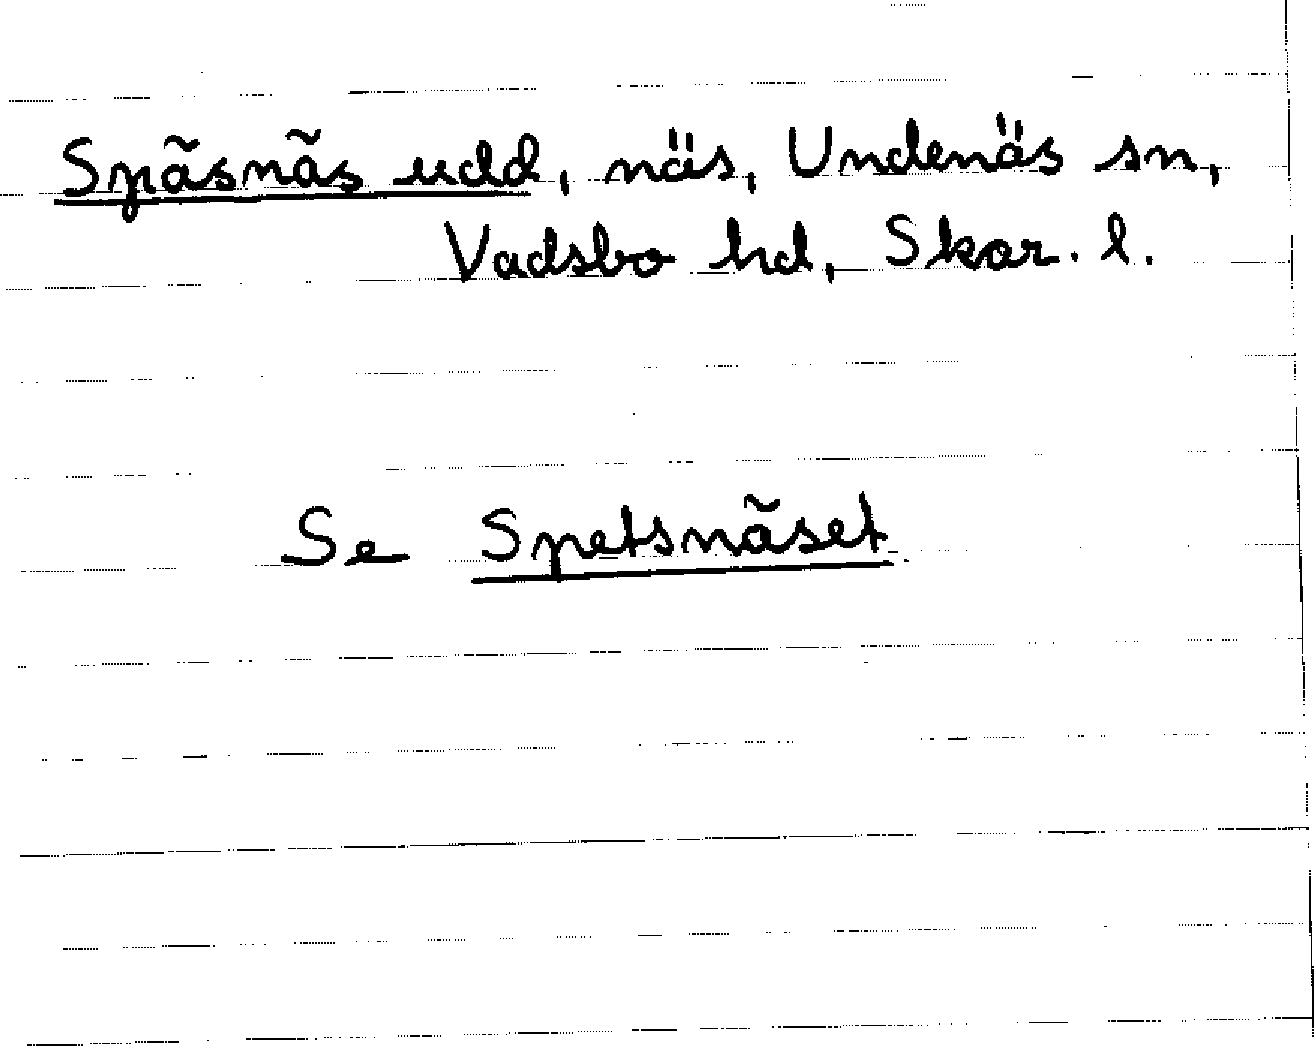 Späsnäs udd, näs, Undenäs sn,
Vadsbo hd, Skar. l.
Se Spetsnäset